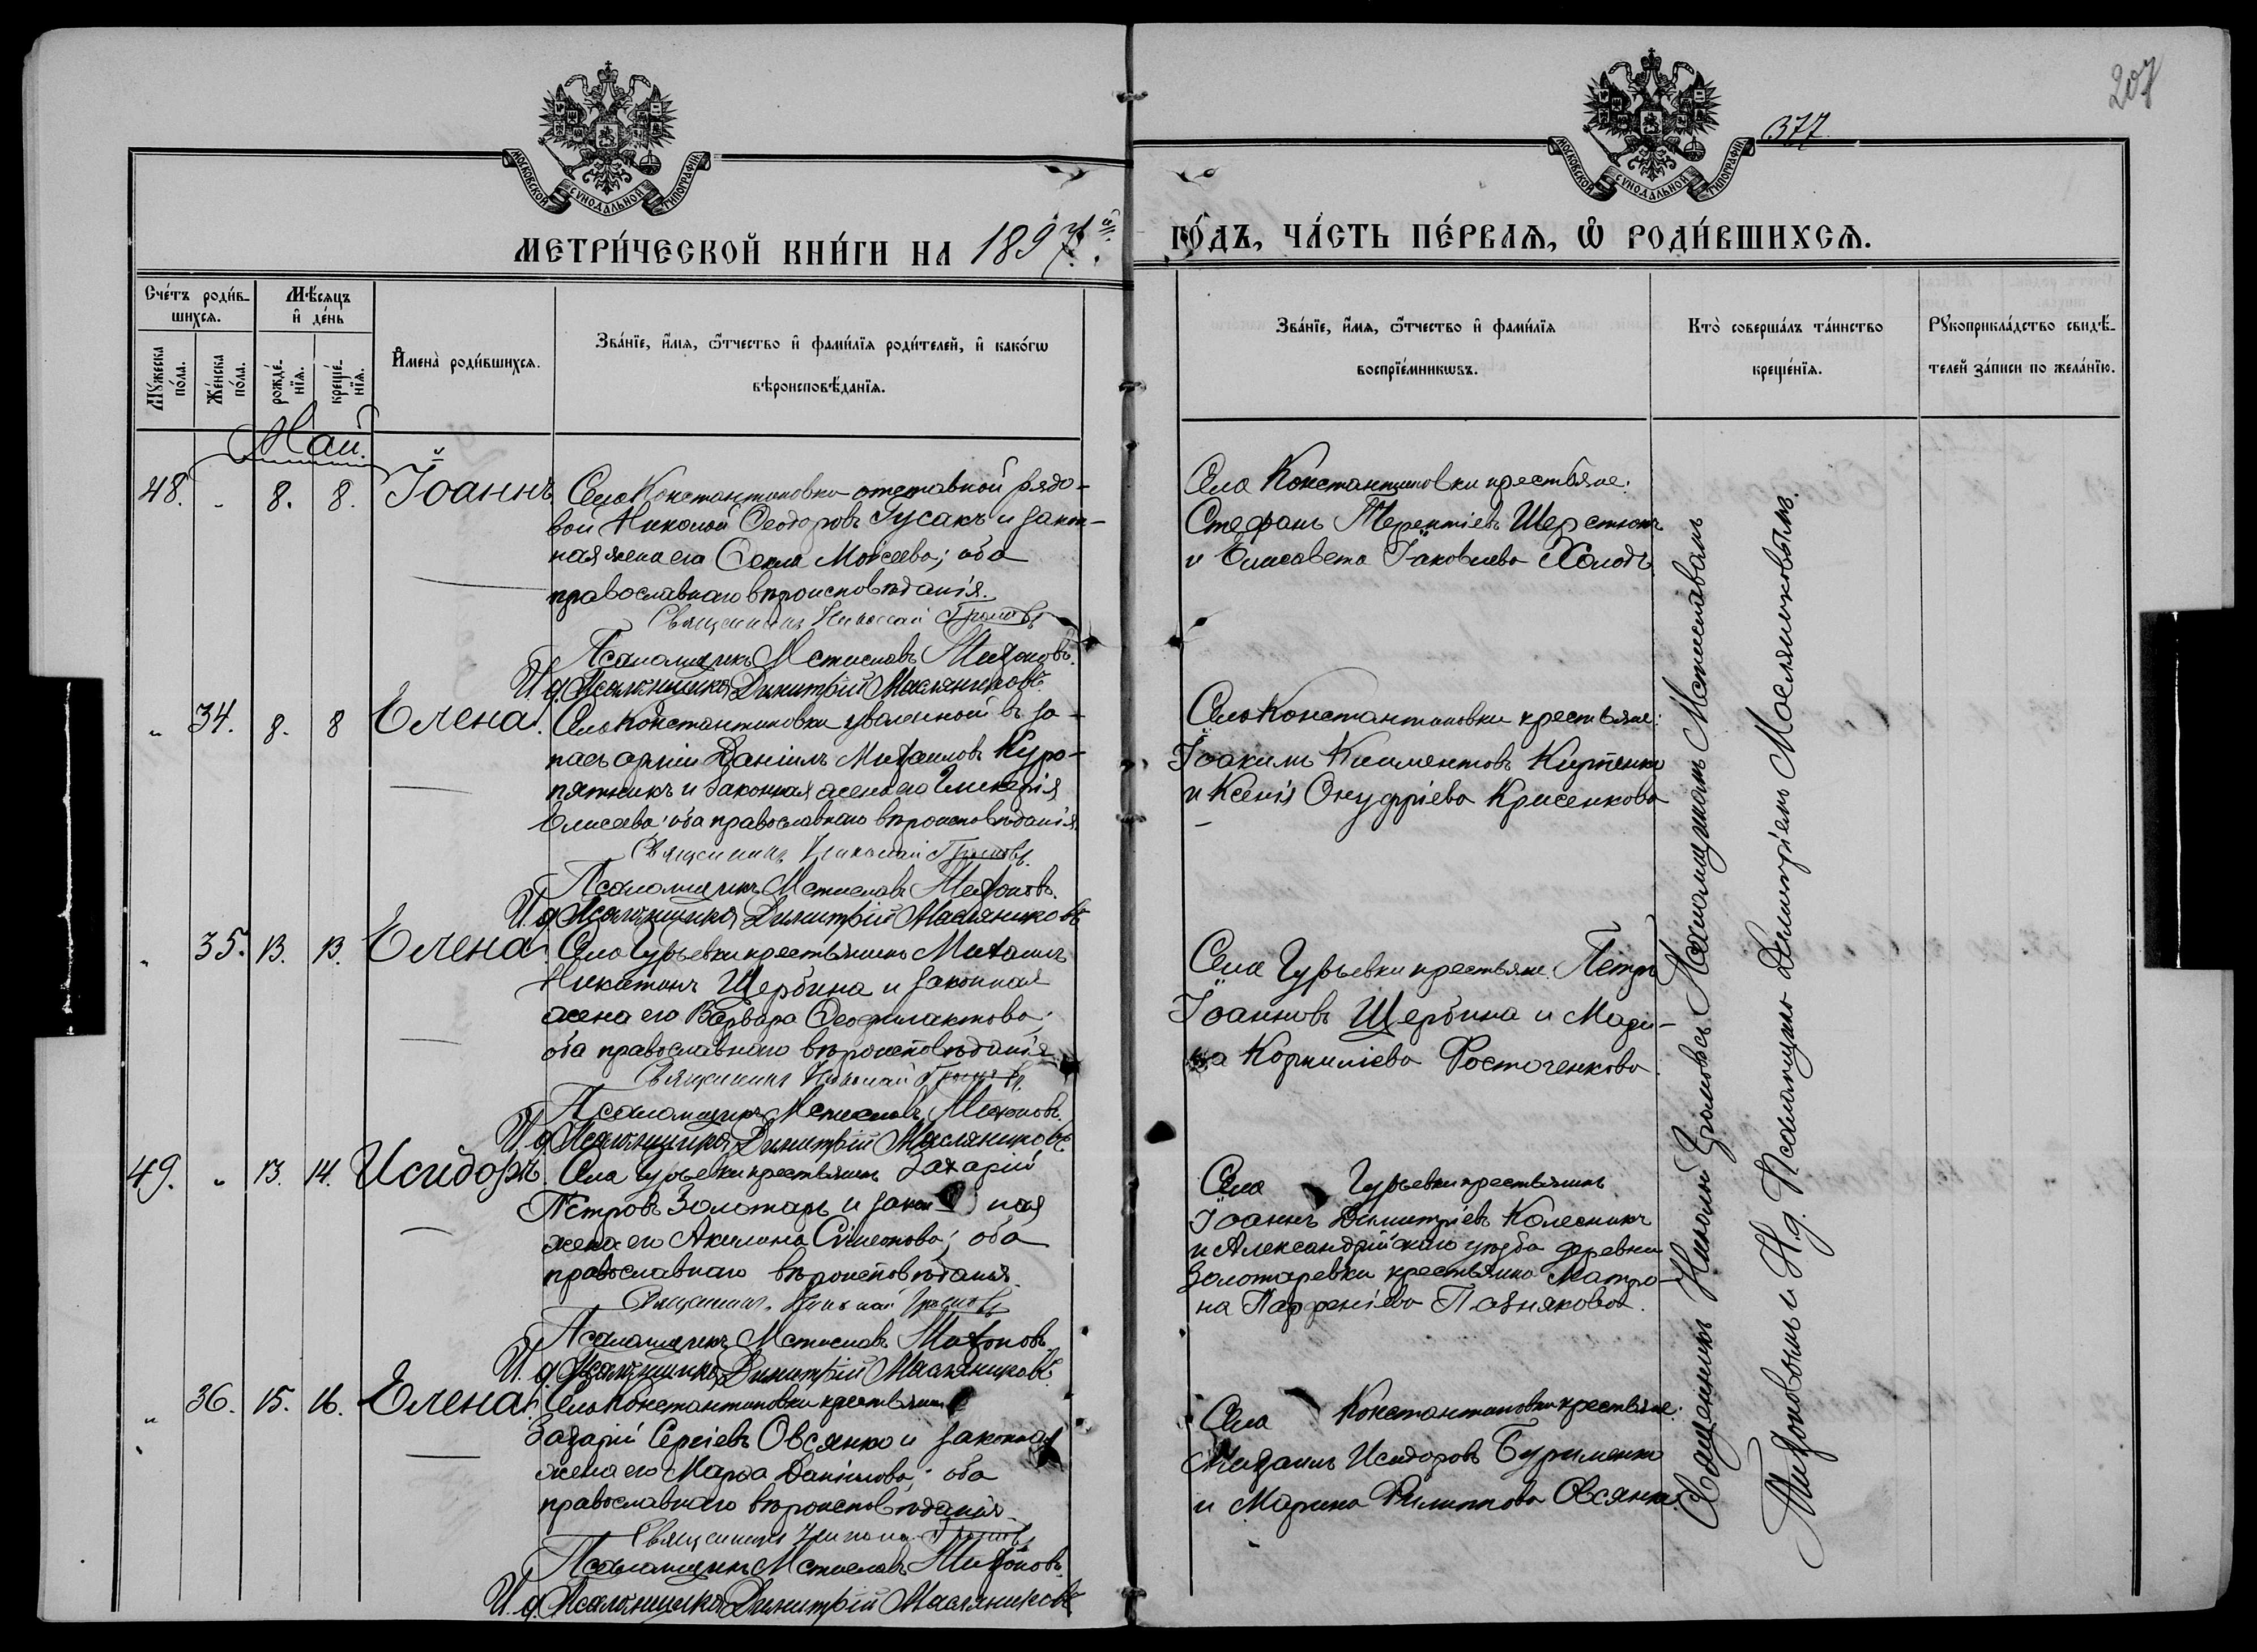 207
377
МОСКОВСКОЙ СѴНОДАЛЬНОЙ ТИПОГРАФІИ
МОСКОВСКОЙ СѴНОДАЛЬНОЙ ТИПОГРАФІИ
МЕТРИ́ЧЕСКОЙ КНИ́ГИ НА 1897й.
ГО́ДЪ, ЧА́СТЬ ПЕ́РВАѦ, Ѡ РОДИ́ВШИХСѦ.
Сче́тъ роди́в-
шихсѧ.
Мѣ́сѧцъ
и҆ де́нь
Мꙋ́жеска
по́ла.
Же́нска
по́ла.
рожде́-
нїѧ.
креще́-
нїѧ.
И҆мена̀ роди́вшихсѧ.
Зва́нїе, и҆́мѧ, ѻ҆́тчество и҆ фами́лїѧ роди́телей, и҆ како́гѡ
вѣроисповѣ́данїѧ.
Зва́нїе, и҆́мѧ, ѻ҆́тчество и҆ фами́лїѧ
воспрїе́мникѡвъ.
Кто̀ соверша́лъ та́инство
креще́нїѧ.
Рꙋкоприкла́дство свидѣ́-
телей за́писи по жела́нїю.
Май.
48. „ 8. 8. Іоаннъ
Села Константиновки отставной рядо-
вой Николай Ѳеодоровъ Гусакъ и закон-
ная жена его Ѳекла Моисеева; оба
православнаго вѣроисповѣданія.
Священникъ Николай Громовъ
Псаломщикъ Мстиславъ Тихоновъ.
И. д. Псаломщика Димитрій Масляниковъ.
Села Константиновки крестьяне:
Стефанъ Терентіевъ Шерстюкъ
и Елисавета Іаковлева Холодъ
„ 34. 8. 8 Елена.
Села Константиновки уволенной въ за-
пасъ арміи Даніилъ Михаиловъ Куро-
пятникъ и законная жена его Гликерія
Елисеева; оба православнаго вѣроисповѣданія.
Священникъ Николай Громовъ.
Псаломщикъ Мстиславъ Тихоновъ.
И. д. Псаломщика Димитрій Масляниковъ
Села Константиновки крестьяне:
Іоакимъ Климентовъ
и Ксенія Онуфріева Крисенкова
„ 35. 13. 13. Елена
Села Гурьевки крестьянинъ Михаилъ
Щербина и законная
жена его Варвара Ѳеофилактова;
оба православнаго вѣроисповѣданія
Священникъ Николай Громовъ.
Псаломщикъ Мстиславъ Тихоновъ.
И. д. Псаломщика Димитрій Масляниковъ.
Села Гурьевки крестьяне: Петръ
Іоанновъ Щербина и Мари-
на Корниліева
49. „ 13. 14. Исидоръ.
Села Гурьевки крестьянинъ Захарій
Петровъ Золотарь и закон ная
жена его Акилина Симеонова; оба
православнаго вѣроисповѣданія.
Священникъ Николай Громовъ
Псаломщикъ Мстиславъ Тихоновъ.
И. д. Псаломщика Димитрій Масляниковъ.
Села Гурьевки крестьянинъ
Іоаннъ Димитріевъ Колесникъ
и Александрійскаго уѣзда деревни
Золотаревки крестьянка Матро-
на Парѳеніева
„ 36. 15. 16. Елена.
Села Константиновки крестьянинъ
Захарій Сергіевъ Овсянко и законная
жена его Марѳа Даніилова; оба
православнаго вѣроисповѣданія.
Священникъ Николай Громовъ
Псаломщикъ Мстиславъ Тихоновъ.
И. д. Псаломщика Димитрій Масляниковъ
Села Константиновки крестьяне:
Михаилъ Исидоровъ Бурименко
и Марина Филиппова Овсянко
Священникъ Николай Громовъ съ Псаломщикомъ Мстиславомъ
Тихоновымъ и И. д. Псаломщика Димитріемъ Масляниковымъ.